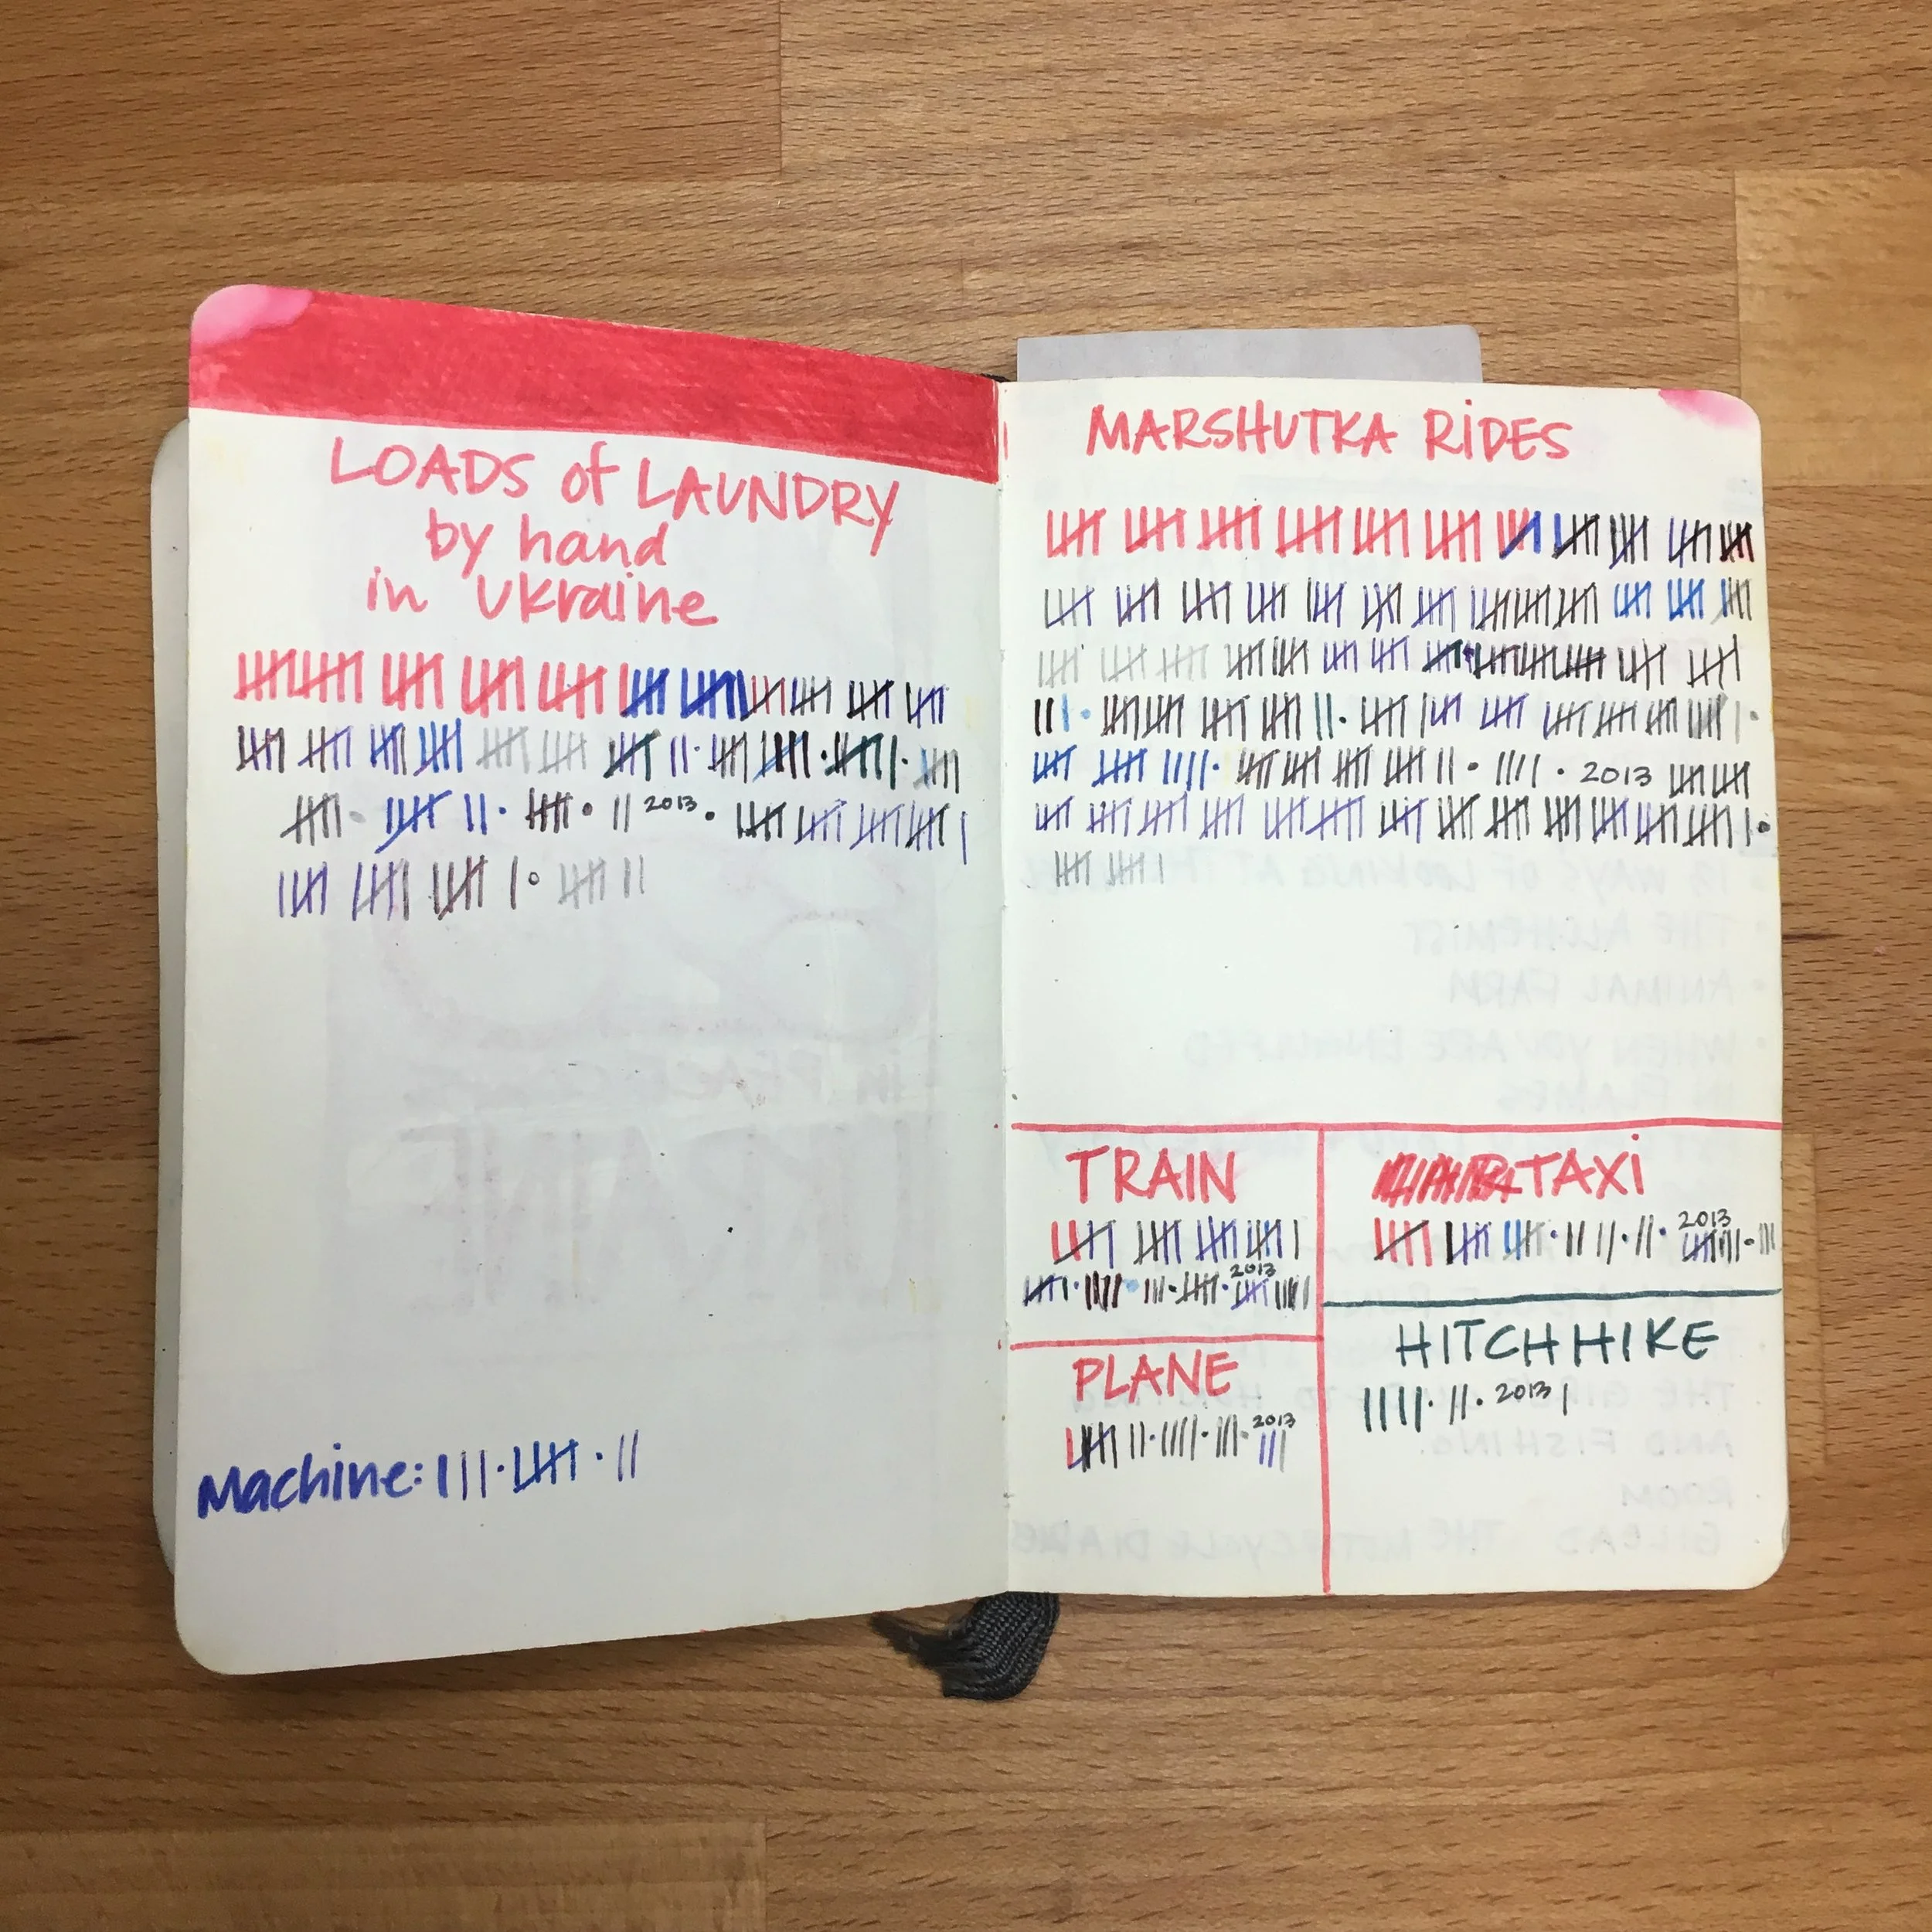 LOADS of LAUNDRY
by hand
in Ukraine
2013
Machine:
MARSHUTKA RIDES
2013
TRAIN
2013
PLANE
2013
TAXI
2013
HITCHHIKE
2013